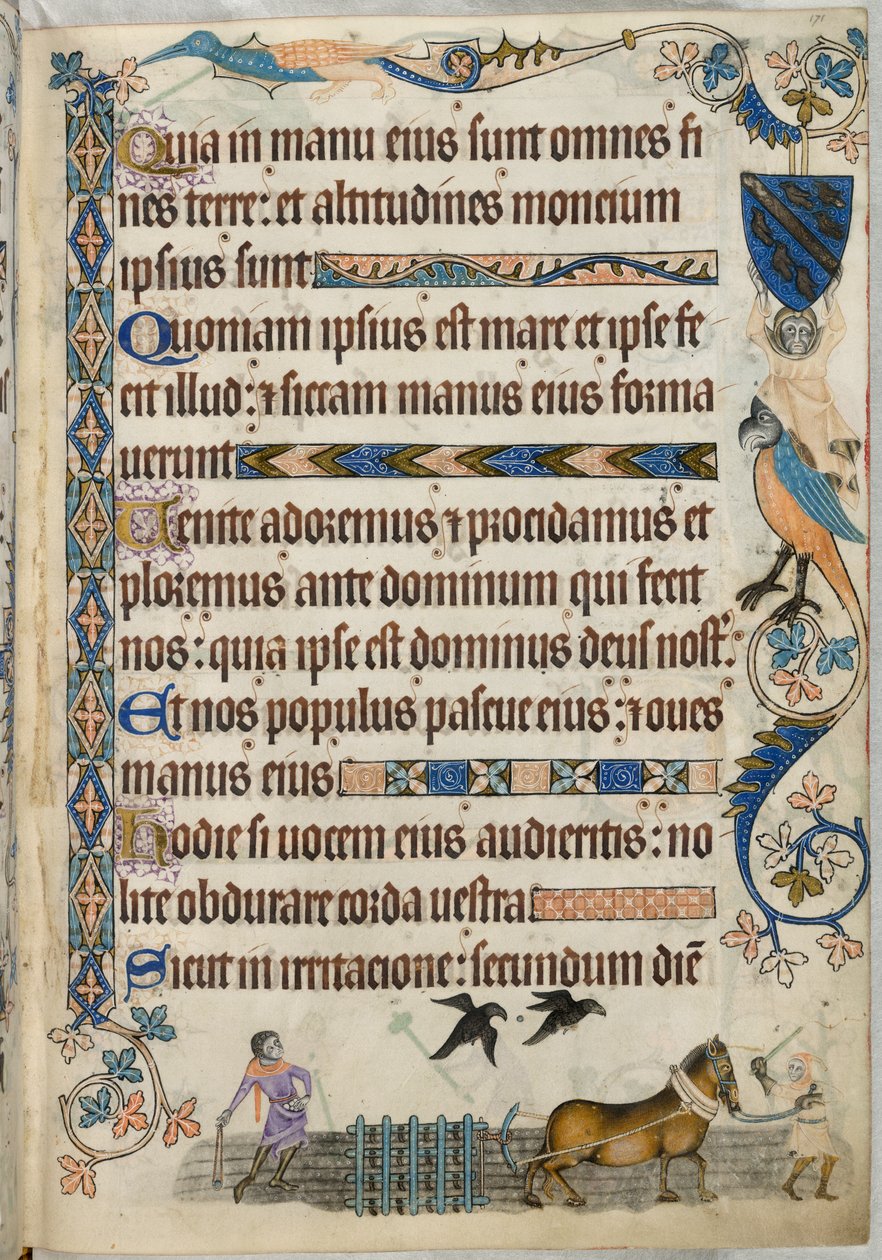 171
Quia in manu eius sunt omnes fi
nes terre: et altitudines moncium
ipsius sunt
Quoniam ipsius est mare et ipse fe
cit illud: ⁊ siccam manus eius forma
uerunt
Uenite adoremus ⁊ procidamus et
ploremus ante dominum qui fecit
nos: quia ipse est dominus deus nost᷒.
Et nos populus pascue eius: ⁊ oues
manus eius
Hodie si uocem eius audieritis: no
lite obdurare corda uestra
Sicut in irritacione: secundum diē